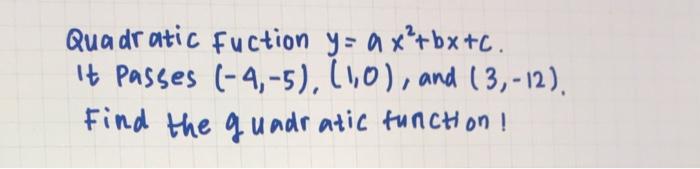 Quadratic Fuction y = ax²+bx+c.
It Passes (-4,-5), (1,0), and (3,-12).
Find the quadratic function!